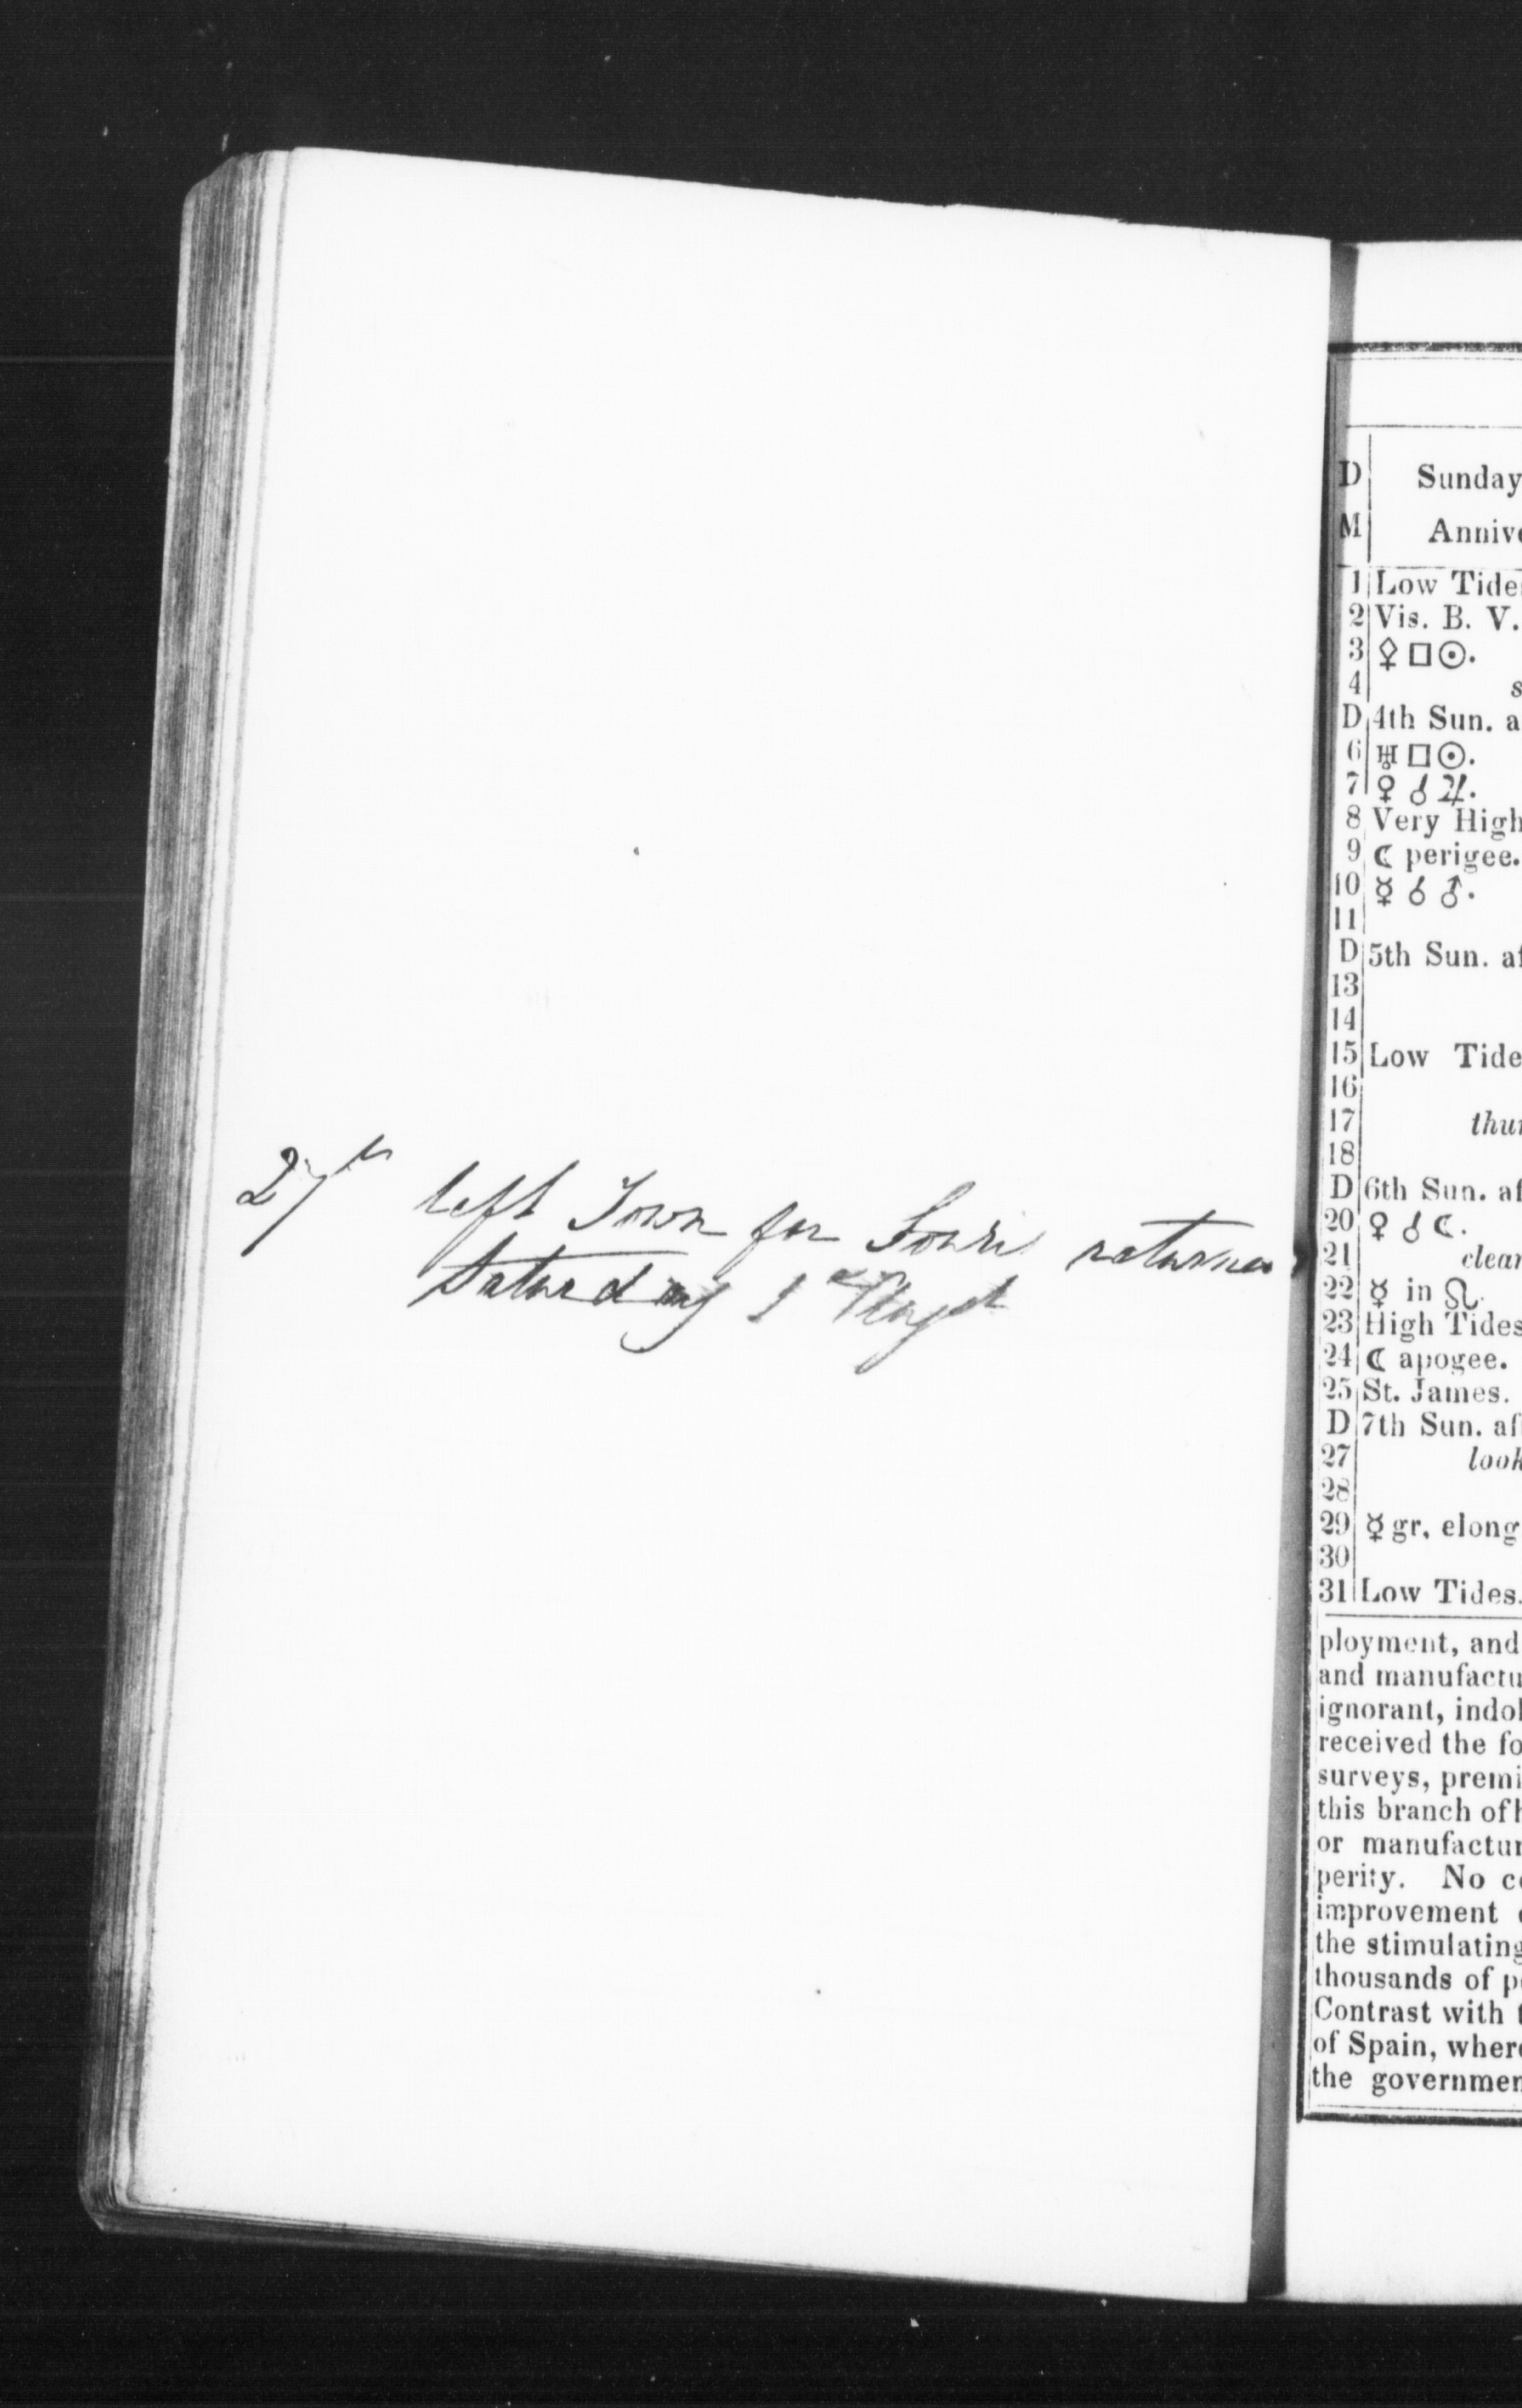 27th left Town for returned
Saturday 1st Augst
D Sunday
M Annive
1 Low Tides
2 Vis. B. V.
3 ⚴□☉.
4 s
D 4th Sun. a
6 ♅□☉.
7 ♀☌♃.
8 Very High
9 ☾ perigee.
10 ☿☌♂.
11
D 5th Sun. af
13
14
15 Low Tide
16
17 thun
18
D 6th Sun. af
20 ♀☌☾.
21 clear
22 ☿ in ♌.
23 High Tides
24 ☾ apogee.
25 St. James.
D 7th Sun. af
27 look
28
29 ☿ gr. elong
30
31 Low Tides.
ployment, and
and manufactu
ignorant, indol
received the fo
surveys, premi
this branch of h
or manufactur
perity. No co
improvement o
the stimulating
thousands of pe
Contrast with t
of Spain, where
the governmen